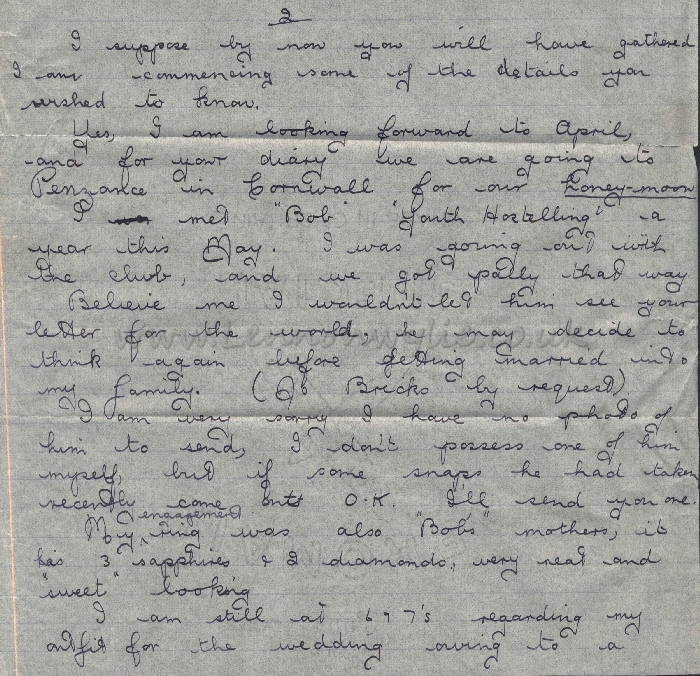 2
I suppose by now you will have gathered
I am commencing some of the details you
wished to know.
Yes, I am looking forward to April,
and for your diary we are going to
Penzance in Cornwall for our honey-moon
I met "Bob" "Youth Hostelling" a
year this May. I was going out with
the club, and we got pally that way
Believe me I wouldn't let him see your
letter for the world, he may decide to
think again before getting married into
my family. ( Bricks by request)
I am very sorry I have no photo of
him to send, I don't possess one of him
myself, but if some snaps he had taken
recently come out O.K. I'll send you one.
My engagement ring was also "Bob's" mothers, it
has 3 sapphires & 2 diamonds, very neat and
"sweet" looking
I am still at 6 & 7's regarding my
outfit for the wedding owing to a